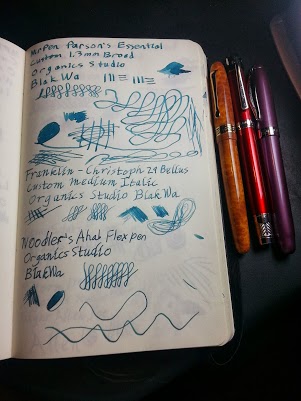 McPen Parson's Essential
Custom 1.3mm Broad
Organics Studio
Blak Wa
Franklin-Christoph 29 Bellus
Custom Medium Italic
Organics Studio Blak Wa
Noodler's Ahab Flexpen
Organics Studio
Blak Wa